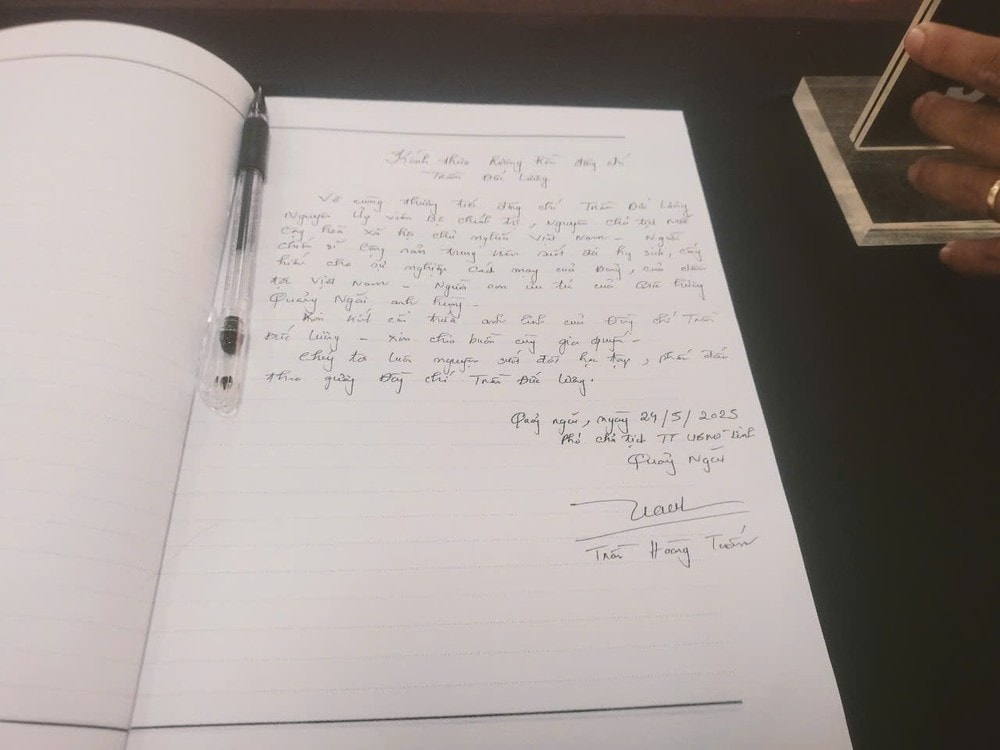 Kính thưa hương hồn đồng chí
Trần Đức Lương
Vô cùng thương tiếc đồng chí Trần Đức Lương
Nguyên Ủy viên Bộ chính trị, Nguyên chủ tịch nước
Cộng hòa xã hội chủ nghĩa Việt Nam - Người
chiến sĩ cộng sản trung kiên suốt đời hy sinh, cống
hiến cho sự nghiệp cách mạng của Đảng, của dân
tộc Việt Nam - Người con ưu tú của quê hương
Quảng Ngãi anh hùng -
Xin kính cẩn trước anh linh của Đồng chí Trần
Đức Lương - xin chia buồn cùng gia quyến -
Chúng tôi luôn nguyện suốt đời học tập, phấn đấu
theo gương Đồng chí Trần Đức Lương.
Quảng ngãi, ngày 24/5/2025
Phó chủ tịch TT UBND tỉnh
Quảng Ngãi
Trần Hoàng Tuấn